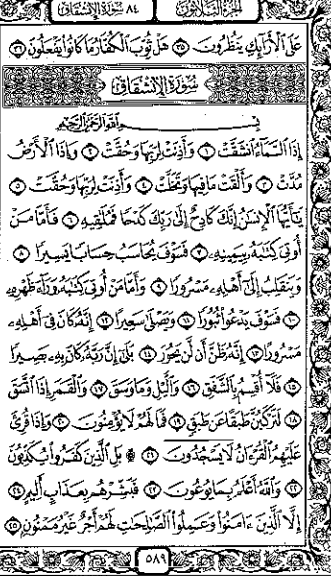 الجزء الثلاثون ٨٤ سورة الانشقاق
عَلَى ٱلْأَرَآئِكِ يَنظُرُونَ ٣٥ هَلْ ثُوِّبَ ٱلْكُفَّارُ مَا كَانُوا۟ يَفْعَلُونَ ٣٦
سُورَةُ الِانْشِقَاقِ
بِسْمِ ٱللَّهِ ٱلرَّحْمَٰنِ ٱلرَّحِيمِ
إِذَا ٱلسَّمَآءُ ٱنشَقَّتْ ١ وَأَذِنَتْ لِرَبِّهَا وَحُقَّتْ ٢ وَإِذَا ٱلْأَرْضُ
مُدَّتْ ٣ وَأَلْقَتْ مَا فِيهَا وَتَخَلَّتْ ٤ وَأَذِنَتْ لِرَبِّهَا وَحُقَّتْ ٥
يَٰٓأَيُّهَا ٱلْإِنسَٰنُ إِنَّكَ كَادِحٌ إِلَىٰ رَبِّكَ كَدْحًا فَمُلَٰقِيهِ ٦ فَأَمَّا مَنْ
أُوتِىَ كِتَٰبَهُۥ بِيَمِينِهِۦ ٧ فَسَوْفَ يُحَاسَبُ حِسَابًا يَسِيرًا ٨
وَيَنقَلِبُ إِلَىٰٓ أَهْلِهِۦ مَسْرُورًا ٩ وَأَمَّا مَنْ أُوتِىَ كِتَٰبَهُۥ وَرَآءَ ظَهْرِهِۦ
١٠ فَسَوْفَ يَدْعُوا۟ ثُبُورًا ١١ وَيَصْلَىٰ سَعِيرًا ١٢ إِنَّهُۥ كَانَ فِىٓ أَهْلِهِۦ
مَسْرُورًا ١٣ إِنَّهُۥ ظَنَّ أَن لَّن يَحُورَ ١٤ بَلَىٰٓ إِنَّ رَبَّهُۥ كَانَ بِهِۦ بَصِيرًا
١٥ فَلَآ أُقْسِمُ بِٱلشَّفَقِ ١٦ وَٱلَّيْلِ وَمَا وَسَقَ ١٧ وَٱلْقَمَرِ إِذَا ٱتَّسَقَ
١٨ لَتَرْكَبُنَّ طَبَقًا عَن طَبَقٍ ١٩ فَمَا لَهُمْ لَا يُؤْمِنُونَ ٢٠ وَإِذَا قُرِئَ
عَلَيْهِمُ ٱلْقُرْءَانُ لَا يَسْجُدُونَ ۩ ٢١ بَلِ ٱلَّذِينَ كَفَرُوا۟ يُكَذِّبُونَ
٢٢ وَٱللَّهُ أَعْلَمُ بِمَا يُوعُونَ ٢٣ فَبَشِّرْهُم بِعَذَابٍ أَلِيمٍ ٢٤
إِلَّا ٱلَّذِينَ ءَامَنُوا۟ وَعَمِلُوا۟ ٱلصَّٰلِحَٰتِ لَهُمْ أَجْرٌ غَيْرُ مَمْنُونٍۭ ٢٥
٥٨٩